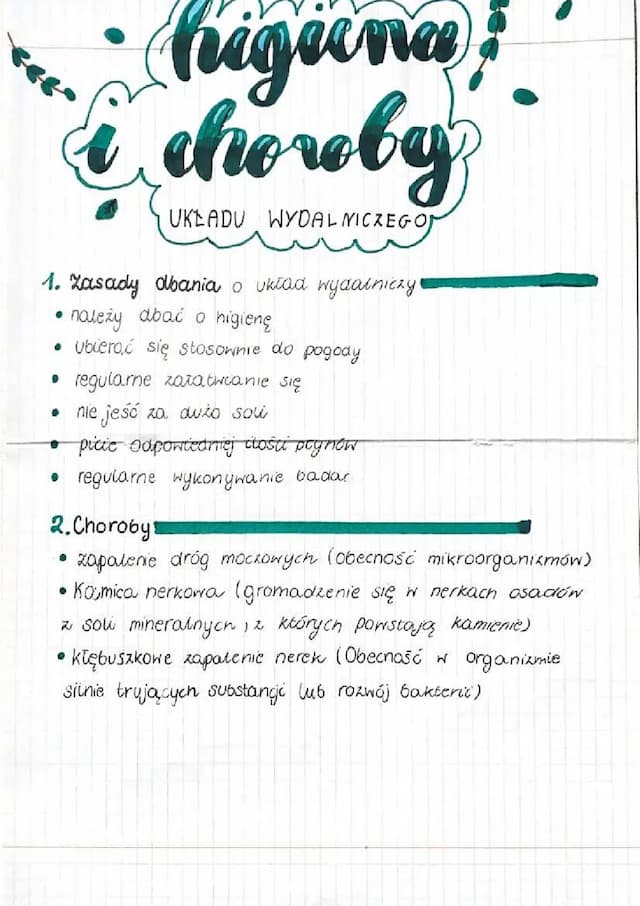 higiena
i choroby
UKŁADU WYDALNICZEGO
1. Zasady dbania o układ wydalniczy
• należy dbać o higienę
• ubierać się stosownie do pogody
• regularne załatwianie się
• nie jeść za dużo soli
• picie odpowiedniej ilości płynów
• regularne wykonywanie badań
2. Choroby
• zapalenie dróg moczowych (obecność mikroorganizmów)
• Kamica nerkowa (gromadzenie się w nerkach osadów
z soli mineralnych, z których powstają kamienie)
• kłębuszkowe zapalenie nerek (Obecność w organizmie
silnie trujących substancji lub rozwój bakterii)